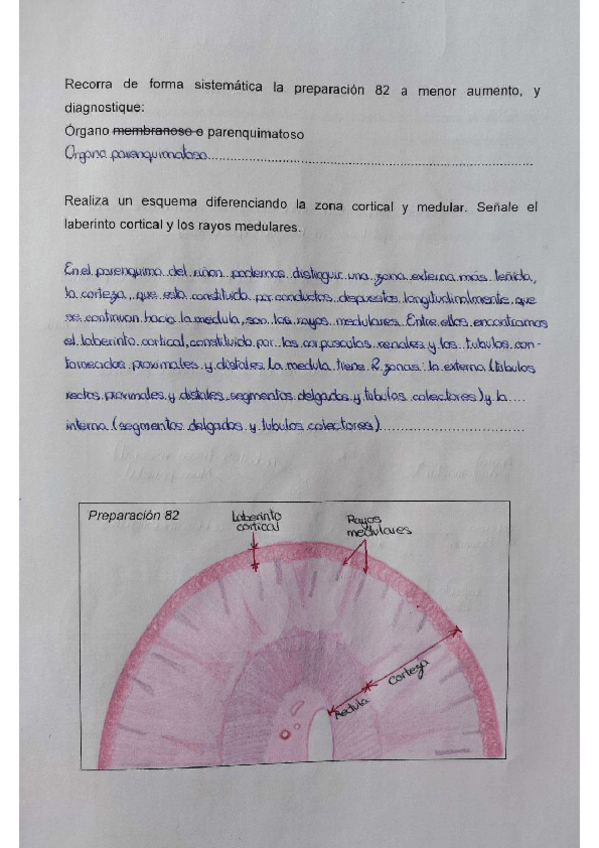 Recorra de forma sistemática la preparación 82 a menor aumento, y
diagnostique:
Órgano membranoso o parenquimatoso
Órgano parenquimatoso
Realiza un esquema diferenciando la zona cortical y medular. Señale el
laberinto cortical y los rayos medulares.
En el parenquima del riñon podemos distinguir una zona externa más teñida,
la corteza, que esta constituida por conductos dispuestos longitudinalmente que
se continuan hacia la medula, son los rayos medulares. Entre ellos encontramos
el laberinto cortical, constituido por los corpusculos renales y los tubulos con-
torneados proximales y distales. La medula tiene 2 zonas: la externa (tubulos
rectos proximales y distales, segmentos delgados y tubulos colectores) y la
interna (segmentos delgados y tubulos colectores)
Preparación 82
Laberinto
cortical
Rayos
medulares
Corteza
Medula